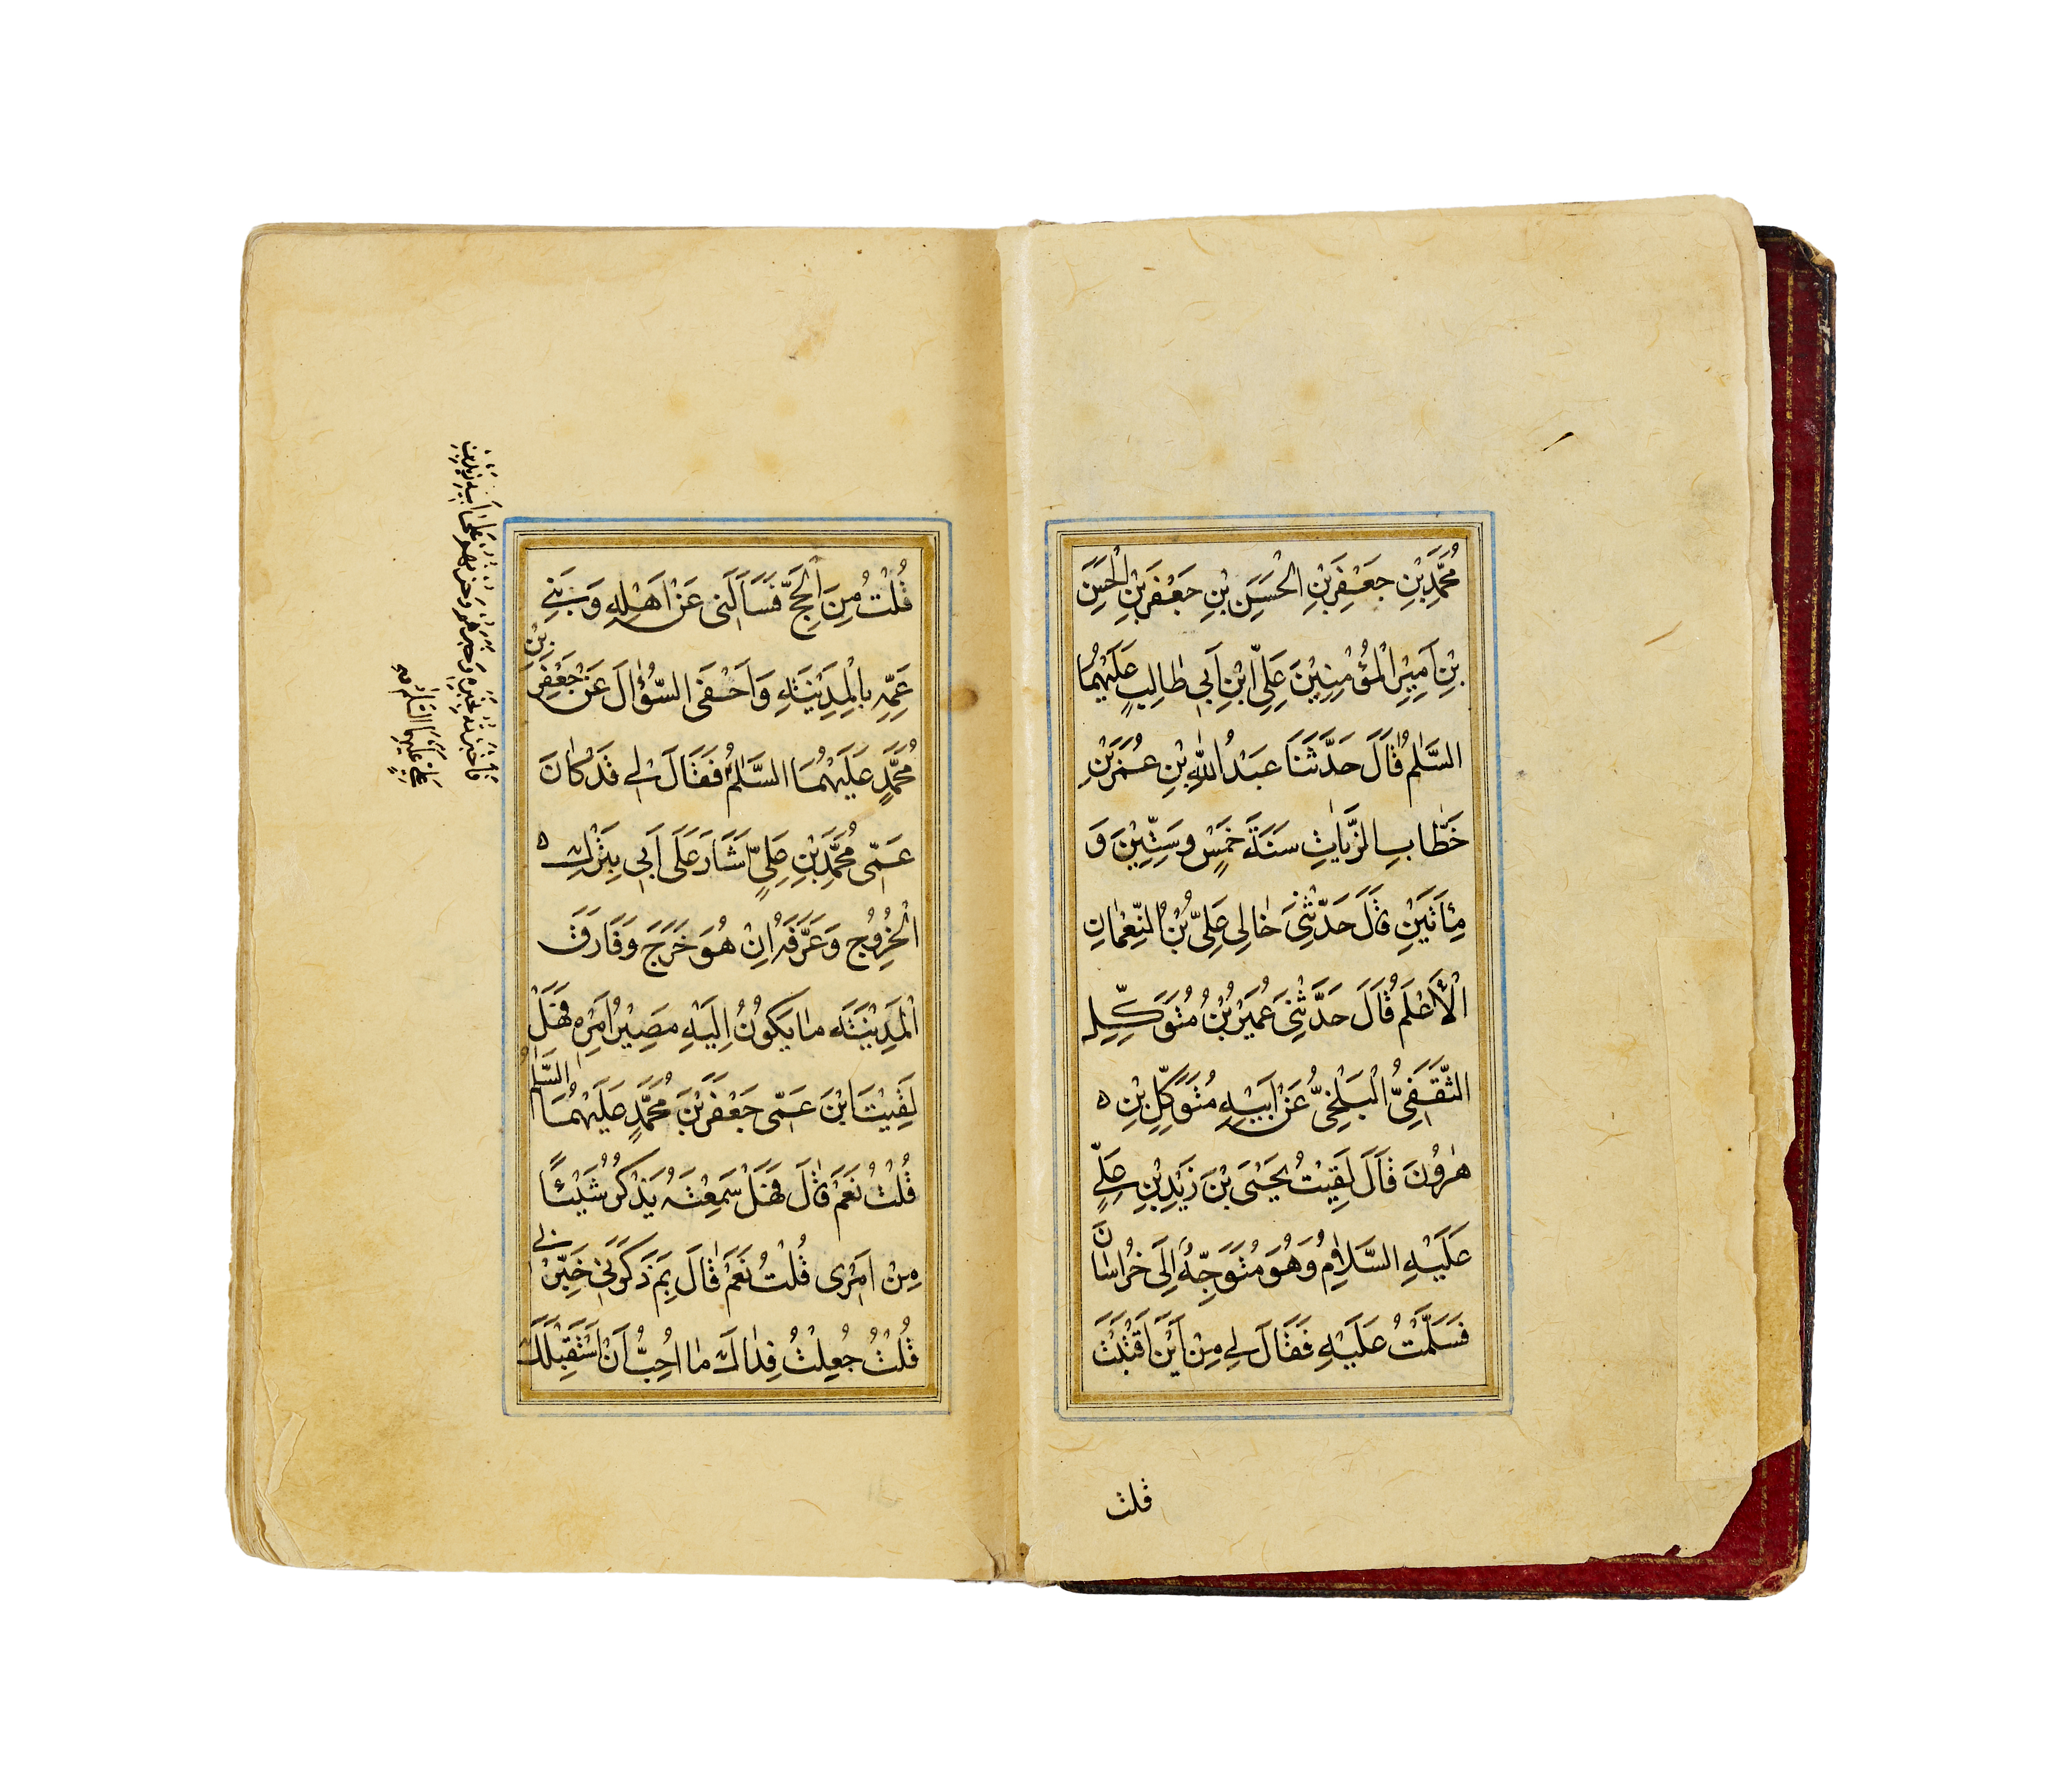 مُحَمَّدِ بْنِ جَعْفَرِ بْنِ الْحَسَنِ بْنِ جَعْفَرِ بْنِ الْحَسَنِ
بْنِ اَمِيْرِ الْمُؤْمِنِيْنَ عَلِيِّ ابْنِ اَبِي طٰالِبٍ عَلَيْهِمُا
السَّلٰمُ قٰالَ حَدَّثَنَا عَبْدُ اللّٰهِ بْنِ عُمَرَ بْنِ
خَطّٰابِ الزَّيّٰاتِ سَنَةَ خَمْسٍ وَ سِتِّيْنَ وَ
مِأَتَيْنِ قٰالَ حَدَّثَنِىْ خٰالِى عَلِىُّ بْنُ النِّعْمٰانِ
الْأَعْلَمُ قٰالَ حَدَّثَنِىْ عُمَيْرُ بْنُ مُتَوَكِّلِ
الثَّقَفِىُّ الْبَلْخِىُّ عَنْ اَبِيْهِ مُتَوَكِّلِ بْنِ ٥
هٰرُوْنَ قٰالَ لَقِيْتُ يَحْيَىَ بْنَ زَيْدِ بْنِ عَلِيٍّ
عَلَيْهِ السَّلاٰمُ وَهُوَ مُتَوَجِّهٌ اِلَى خُرٰاسٰانَ
فَسَلَّمْتُ عَلَيْهِ فَقٰالَ لِي مِنْ اَيْنَ اَقْبَلْتَ
قلت
قُلْتُ مِنَ الْحَجِّ فَسَأَلَنِى عَنْ اَهْلِهِ وَ بَنِي
عَمِّهِ بِالْمَدِيْنَةِ وَاَحْفَى السُّؤٰالَ عَنْ جَعْفَرِ بْنِ
مُحَمَّدٍ عَلَيْهِمَا السَّلٰمُ فَقٰالَ لِي قَدْ كٰانَ
عَمِّى مُحَمَّدِ بْنِ عَلِيٍّ اَشٰارَ عَلَى اَبِى بِتَرْكِ ٥
الْخُرُوْجِ وَعَرَّفَهُ اِنْ هُوَ خَرَجَ وَفَارَقَ
الْمَدِيْنَةَ مٰا يَكُوْنُ اِلَيْهِ مَصِيْرُ اَمْرِهِ فَهَلْ
لَقِيْتَ ابْنَ عَمِّى جَعْفَرَ بْنَ مُحَمَّدٍ عَلَيْهِمَا السَّلٰمُ
قُلْتُ نَعَمْ قٰالَ فَهَلْ سَمِعْتَهُ يَذْكُرُ شَيْئًا
مِنْ اَمْرِى قُلْتُ نَعَمْ قٰالَ بِمَ ذَكَرَنِىْ خَبِّرْنِي
قُلْتُ جُعِلْتُ فِدٰاكَ مٰا اُحِبُّ اَنْ اَسْتَقْبِلَكَ
فاخبرته بخبره وخبرهم وحزنهم على ابيه زيد بن
علي عليهما السلم صح